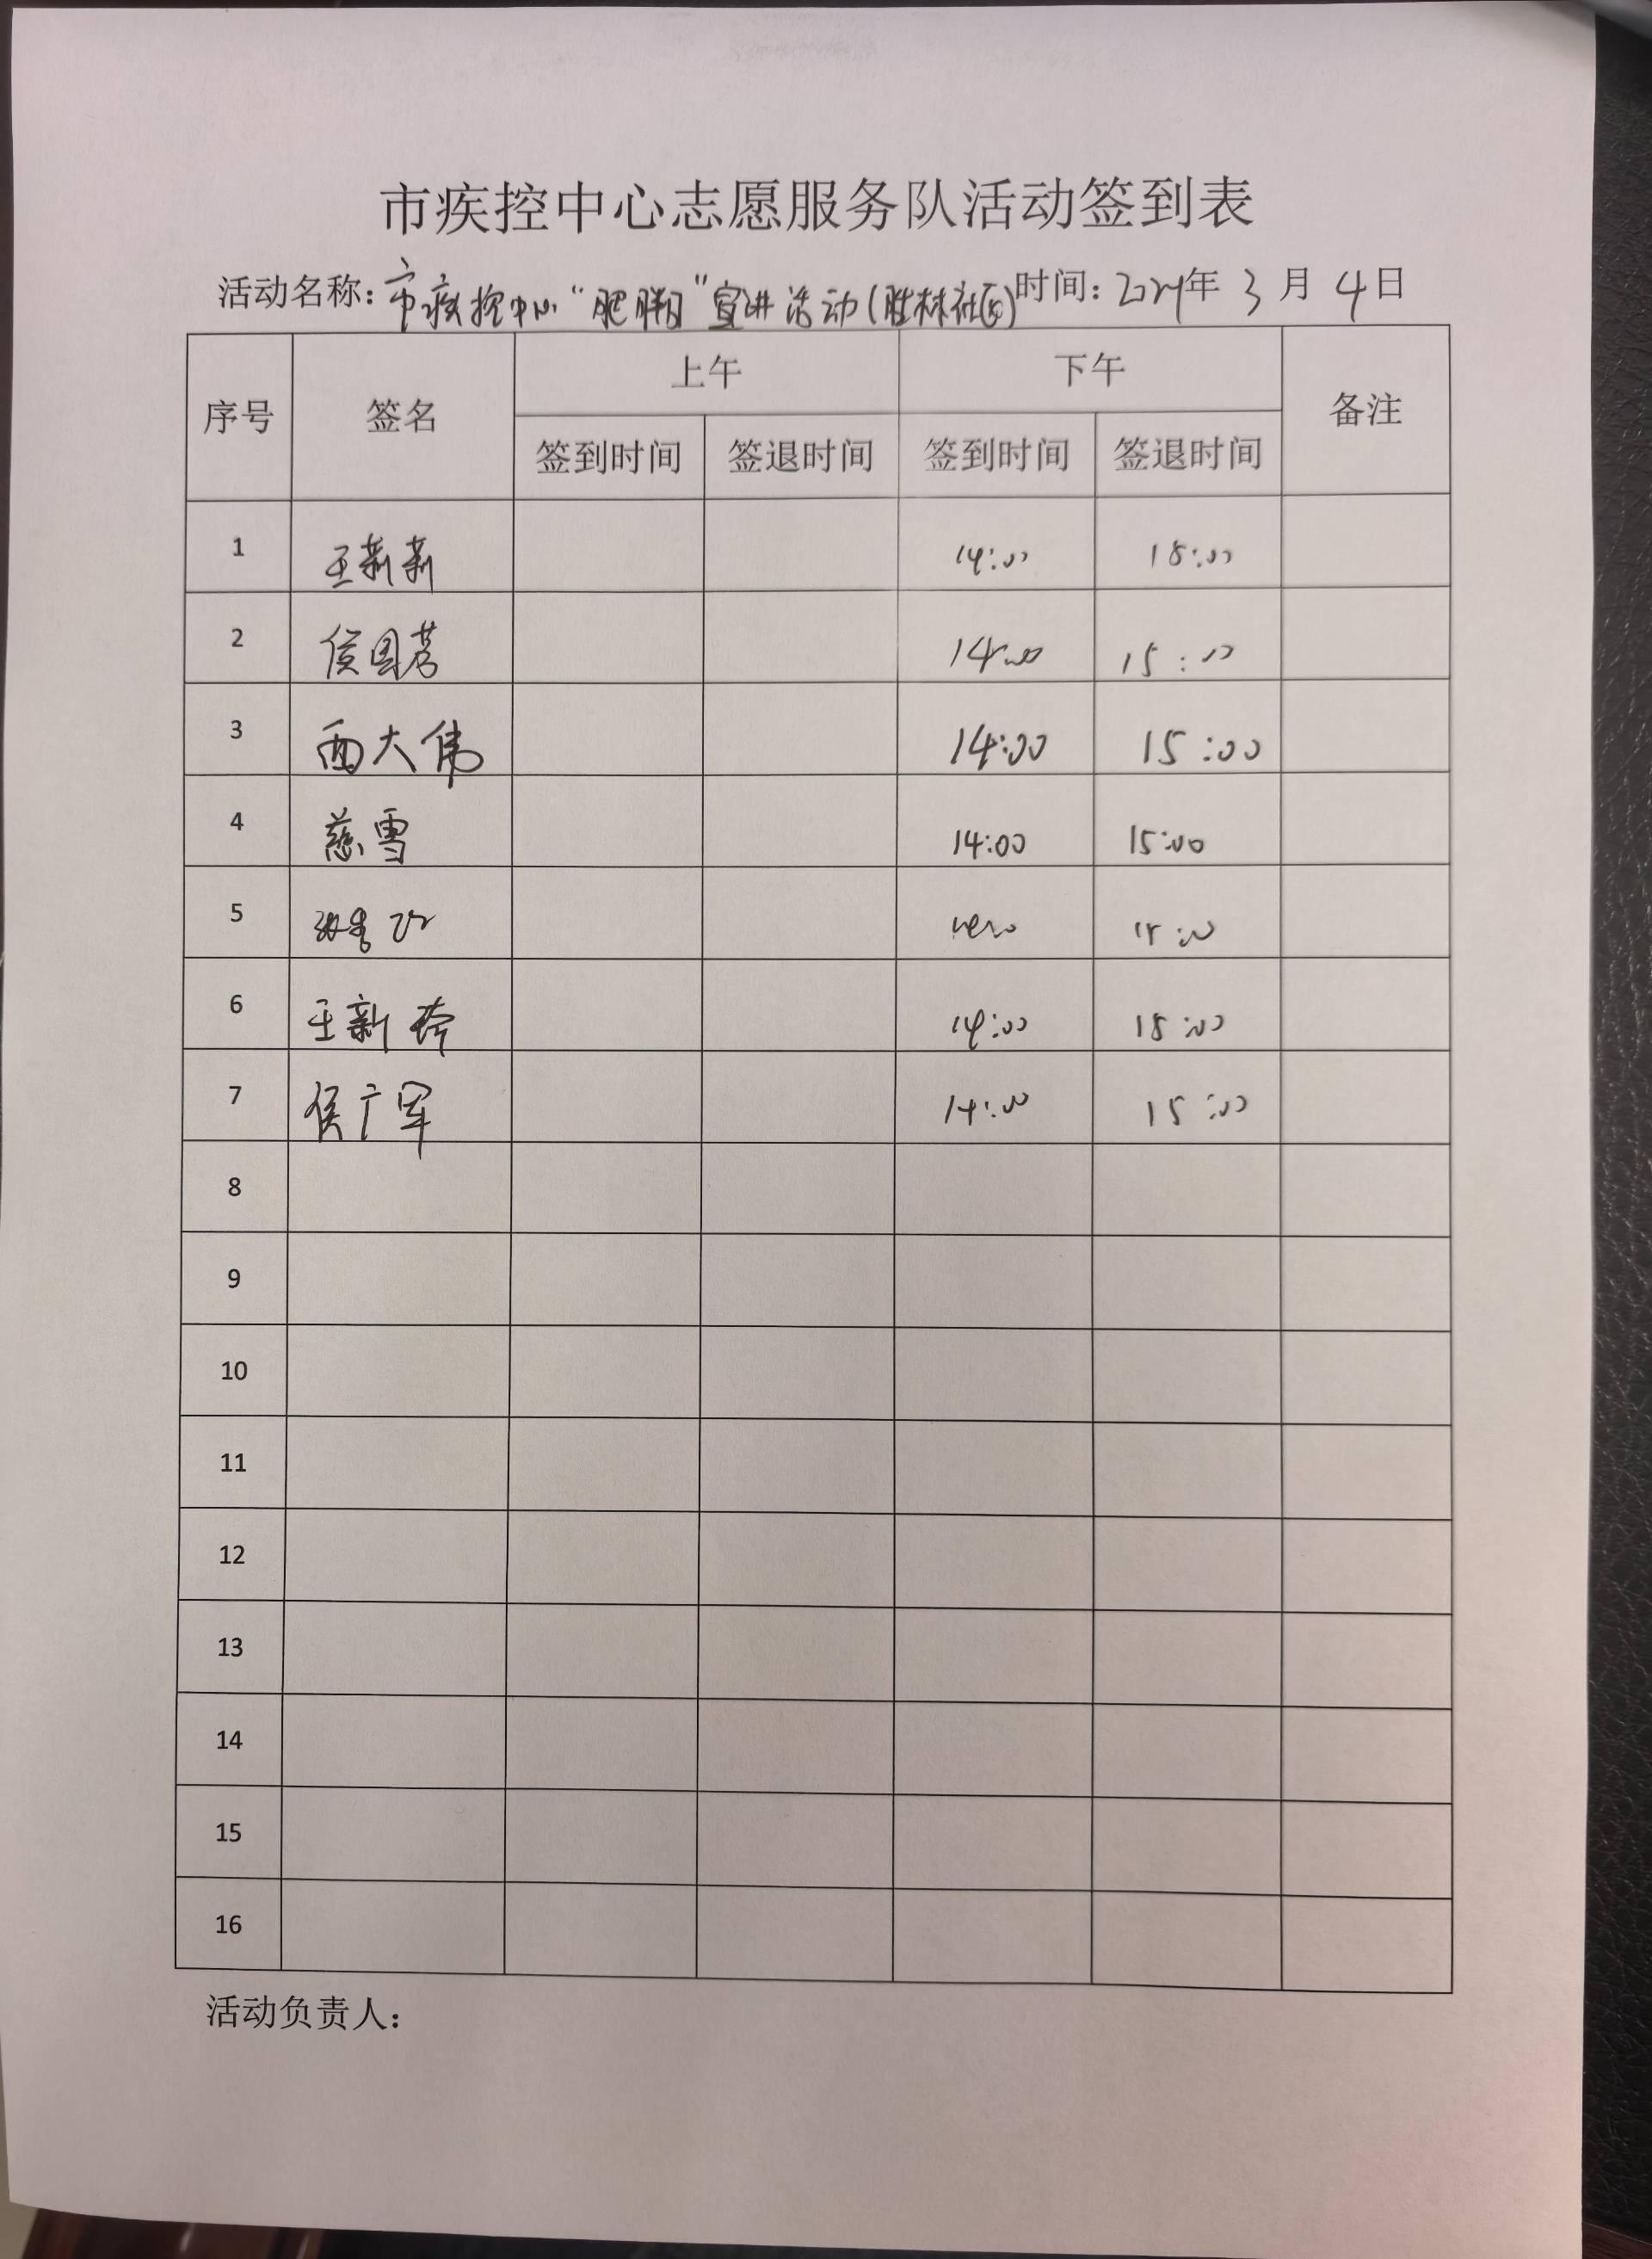 市疾控中心志愿服务队活动签到表
活动名称：市疾控中心“肥胖日”宣讲活动（胜林社区） 时间：2024年 3 月 4 日
序号 签名 上午 下午 备注
签到时间 签退时间 签到时间 签退时间
1 王莉莉 14:00 15:00
2 侯国芳 14:00 15:00
3 西大伟 14:00 15:00
4 慈雪 14:00 15:00
5 15:00
6 王新玲 14:00 15:00
7 侯广军 14:00 15:00
8
9
10
11
12
13
14
15
16
活动负责人：